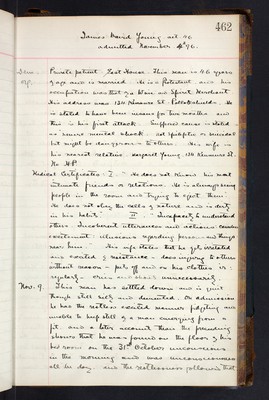 462
James David Young aet 46
admitted November 4th 96.
Private patient East House. This man is 46 years
of age and is married. He is a Protestant and his
occupation was that of a Wine and Spirit Merchant
His address was 134 Kenmure St. Pollokshields. He
is stated to have been insane for two months and
this is his first attack. Supposed cause is stated
as severe mental shock. not epileptic or suicidal
but might be dangerous to others. His wife is
his nearest relative. Margaret Young 134 Kenmure St.
No H.P.
Medical Certificates I. - He does not know his most
intimate friends or relations. He is always seeing people
in the room and trying to eject them.
He does not obey the calls of nature and is dirty
in his habits. II - Incapacity to understand
others. Incoherent utterances and
excitement. regarding persons and things
near him. His wife states that he gets irritated
and excited & resistance - dangerous to others
without reason - puts off and on his clothes
Nov. 9. This man has settled down and is quiet
though still silly and demented. On admission
he was in the restless excited manner fidgeting and
unable to keep still of a man emerging from a
fit. and a later account than the preceding
shows that he was found on the floor of his
bed room on the 31st October unconscious
in the morning and was unconscious
all the day. and the restlessness followed that